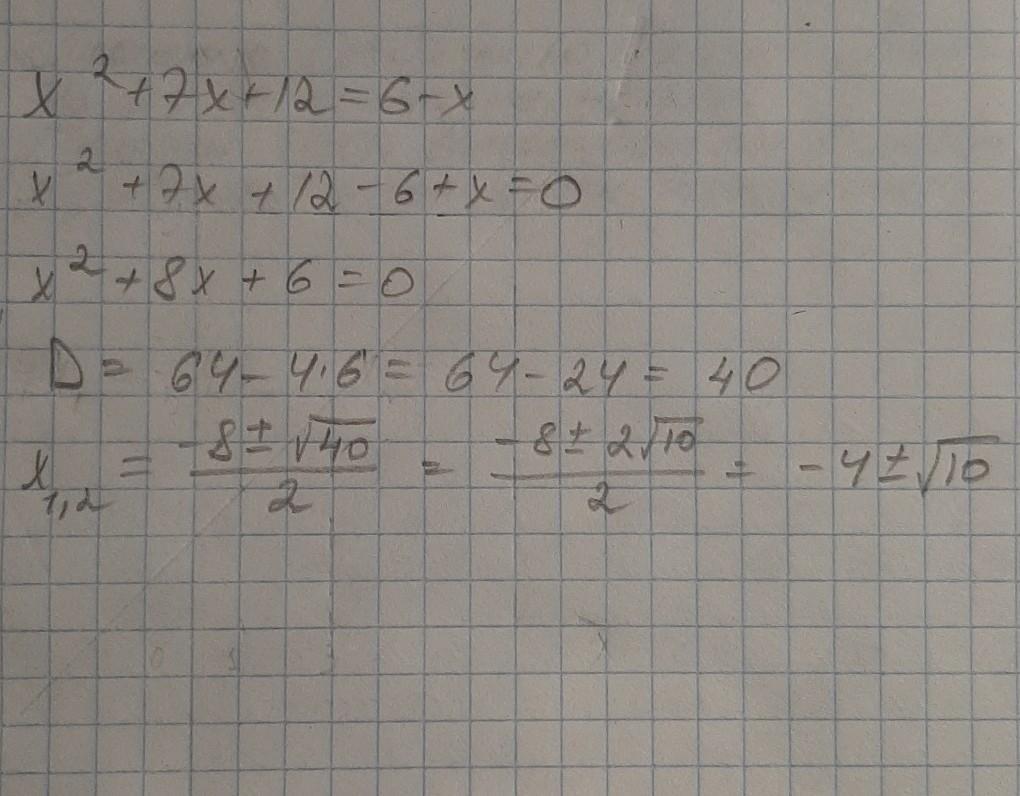 x² + 7x + 12 = 6 - x
x² + 7x + 12 - 6 + x = 0
x² + 8x + 6 = 0
D = 64 - 4·6 = 64 - 24 = 40
x₁,₂ = (-8 ± √40)/2 = (-8 ± 2√10)/2 = -4 ± √10